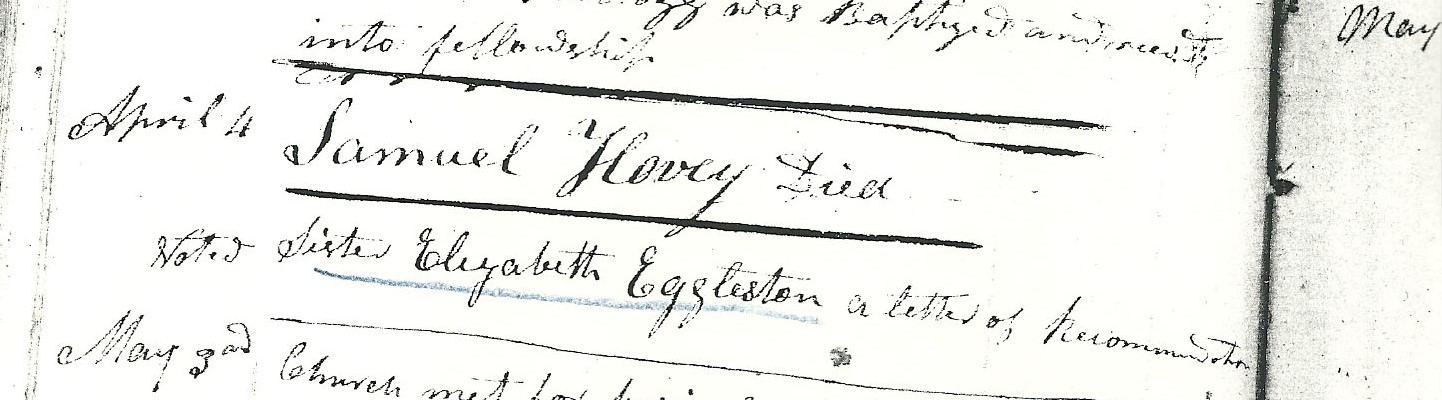 was Baptized and
into fellowship
April 4 Samuel Hovey Died
Voted Sister Elizabeth Eggleston a letter of Recommendation
May 3rd Church met for
May